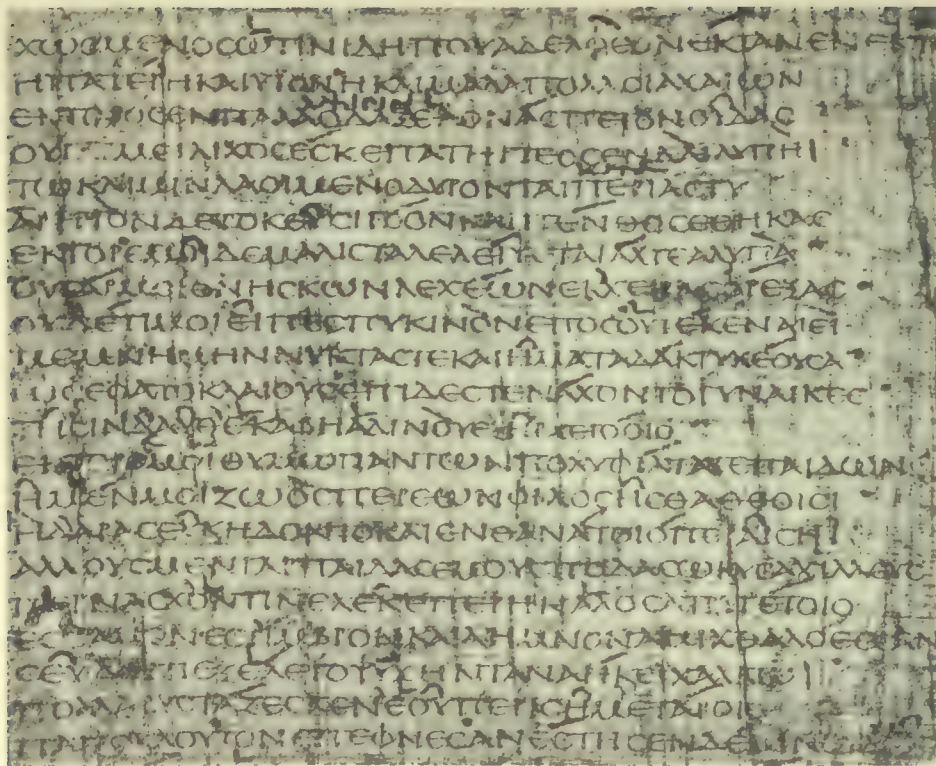 ΧΩΟΜΕΝΟCΩΤΙΝΙΔΗΠΟΥΑΔΕΛΦΕΟΝΕΚΤΑΝΕΝΕΚΤ
ΗΠΑΤΕΡΗΚΑΙΥΙΟΝΗΚΑΙΜΑΛΑΠΟΛΛΟΙΑΧΑΙΩΝ
ΕΚΤΟΡΟCΕΝΠΑΛΑΜΗCΙΝΟΔΑΞΕΛΟΝΑCΠΕΤΟΝΟΥΔΑC
ΟΥΓΑΡΜΕΙΛΙΧΟCΕCΚΕΠΑΤΗΡΤΕΟCΕΝΔΑΙΛΥΓΡΗΙ
ΤΩΚΑΙΜΙΝΛΑΟΙΜΕΝΟΔΥΡΟΝΤΑΙΠΕΡΙΑCΤΥ
ΑΡΗΤΟΝΔΕΤΟΚΕΥCΙΓΟΟΝΚΑΙΠΕΝΘΟCΕΘΗΚΑC
ΕΚΤΟΡΕΜΟΙΔΕΜΑΛΙCΤΑΛΕΛΕΙΨΕΤΑΙΑΛΓΕΑΛΥΓΡΑ
ΟΥΓΑΡΜΟΙΘΝΗCΚΩΝΛΕΧΕΩΝΕΚΧΕΙΡΑCΟΡΕΞΑC
ΟΥΔΕΤΙΜΟΙΕΙΠΕCΠΥΚΙΝΟΝΕΠΟCΟΥΤΕΚΕΝΑΙΕΙ
ΜΕΜΝΗΜΗΝΝΥΚΤΑCΤΕΚΑΙΗΜΑΤΑΔΑΚΡΥΧΕΟΥCΑ
ΩCΕΦΑΤΟΚΛΑΙΟΥCΕΠΙΔΕCΤΕΝΑΧΟΝΤΟΓΥΝΑΙΚΕC
ΤΗCΙΝΔΑΥΘΕΚΑΒΗΑΔΙΝΟΥΕΞΗΡΧΕΓΟΟΙΟ
ΕΚΤΟΡΕΜΩΙΘΥΜΩΠΑΝΤΩΝΠΟΛΥΦΙΛΤΑΤΕΠΑΙΔΩΝ
ΗΜΕΝΜΟΙΖΩΟCΠΕΡΕΩΝΦΙΛΟCΗCΘΑΘΕΟΙCΙ
ΟΙΔΑΡΑCΕΥΚΗΔΟΝΤΟΚΑΙΕΝΘΑΝΑΤΟΙΟΠΕΡΑΙCΗΙ
ΑΛΛΟΥCΜΕΝΓΑΡΠΑΙΔΑCΕΜΟΥCΠΟΔΑCΩΚΥCΑΧΙΛΛΕΥC
ΠΕΡΝΑCΧΟΝΤΙΝΕΛΕCΚΕΠΕΡΗΝΑΛΟCΑΤΡΥΓΕΤΟΙΟ
ΕCCΑΜΟΝΕCΤΙΜΒΡΟΝΚΑΙΛΗΜΝΟΝΑΜΙΧΘΑΛΟΕCCΑΝ
CΕΥΔΕΠΕΙΕΞΕΛΕΤΟΨΥΧΗΝΤΑΝΑΗΚΕΙΧΑΛΚΩΙ
ΠΟΛΛΑΡΥCΤΑΖΕCΚΕΝΕΟΥΠΕΡΙCΗΜΕΤΑΡΟΙΟ
ΠΑΤΡΟΚΛΟΥΤΟΝΕΠΕΦΝΕCΑΝΕCΤΗCΕΝΔΕΜΙΝ